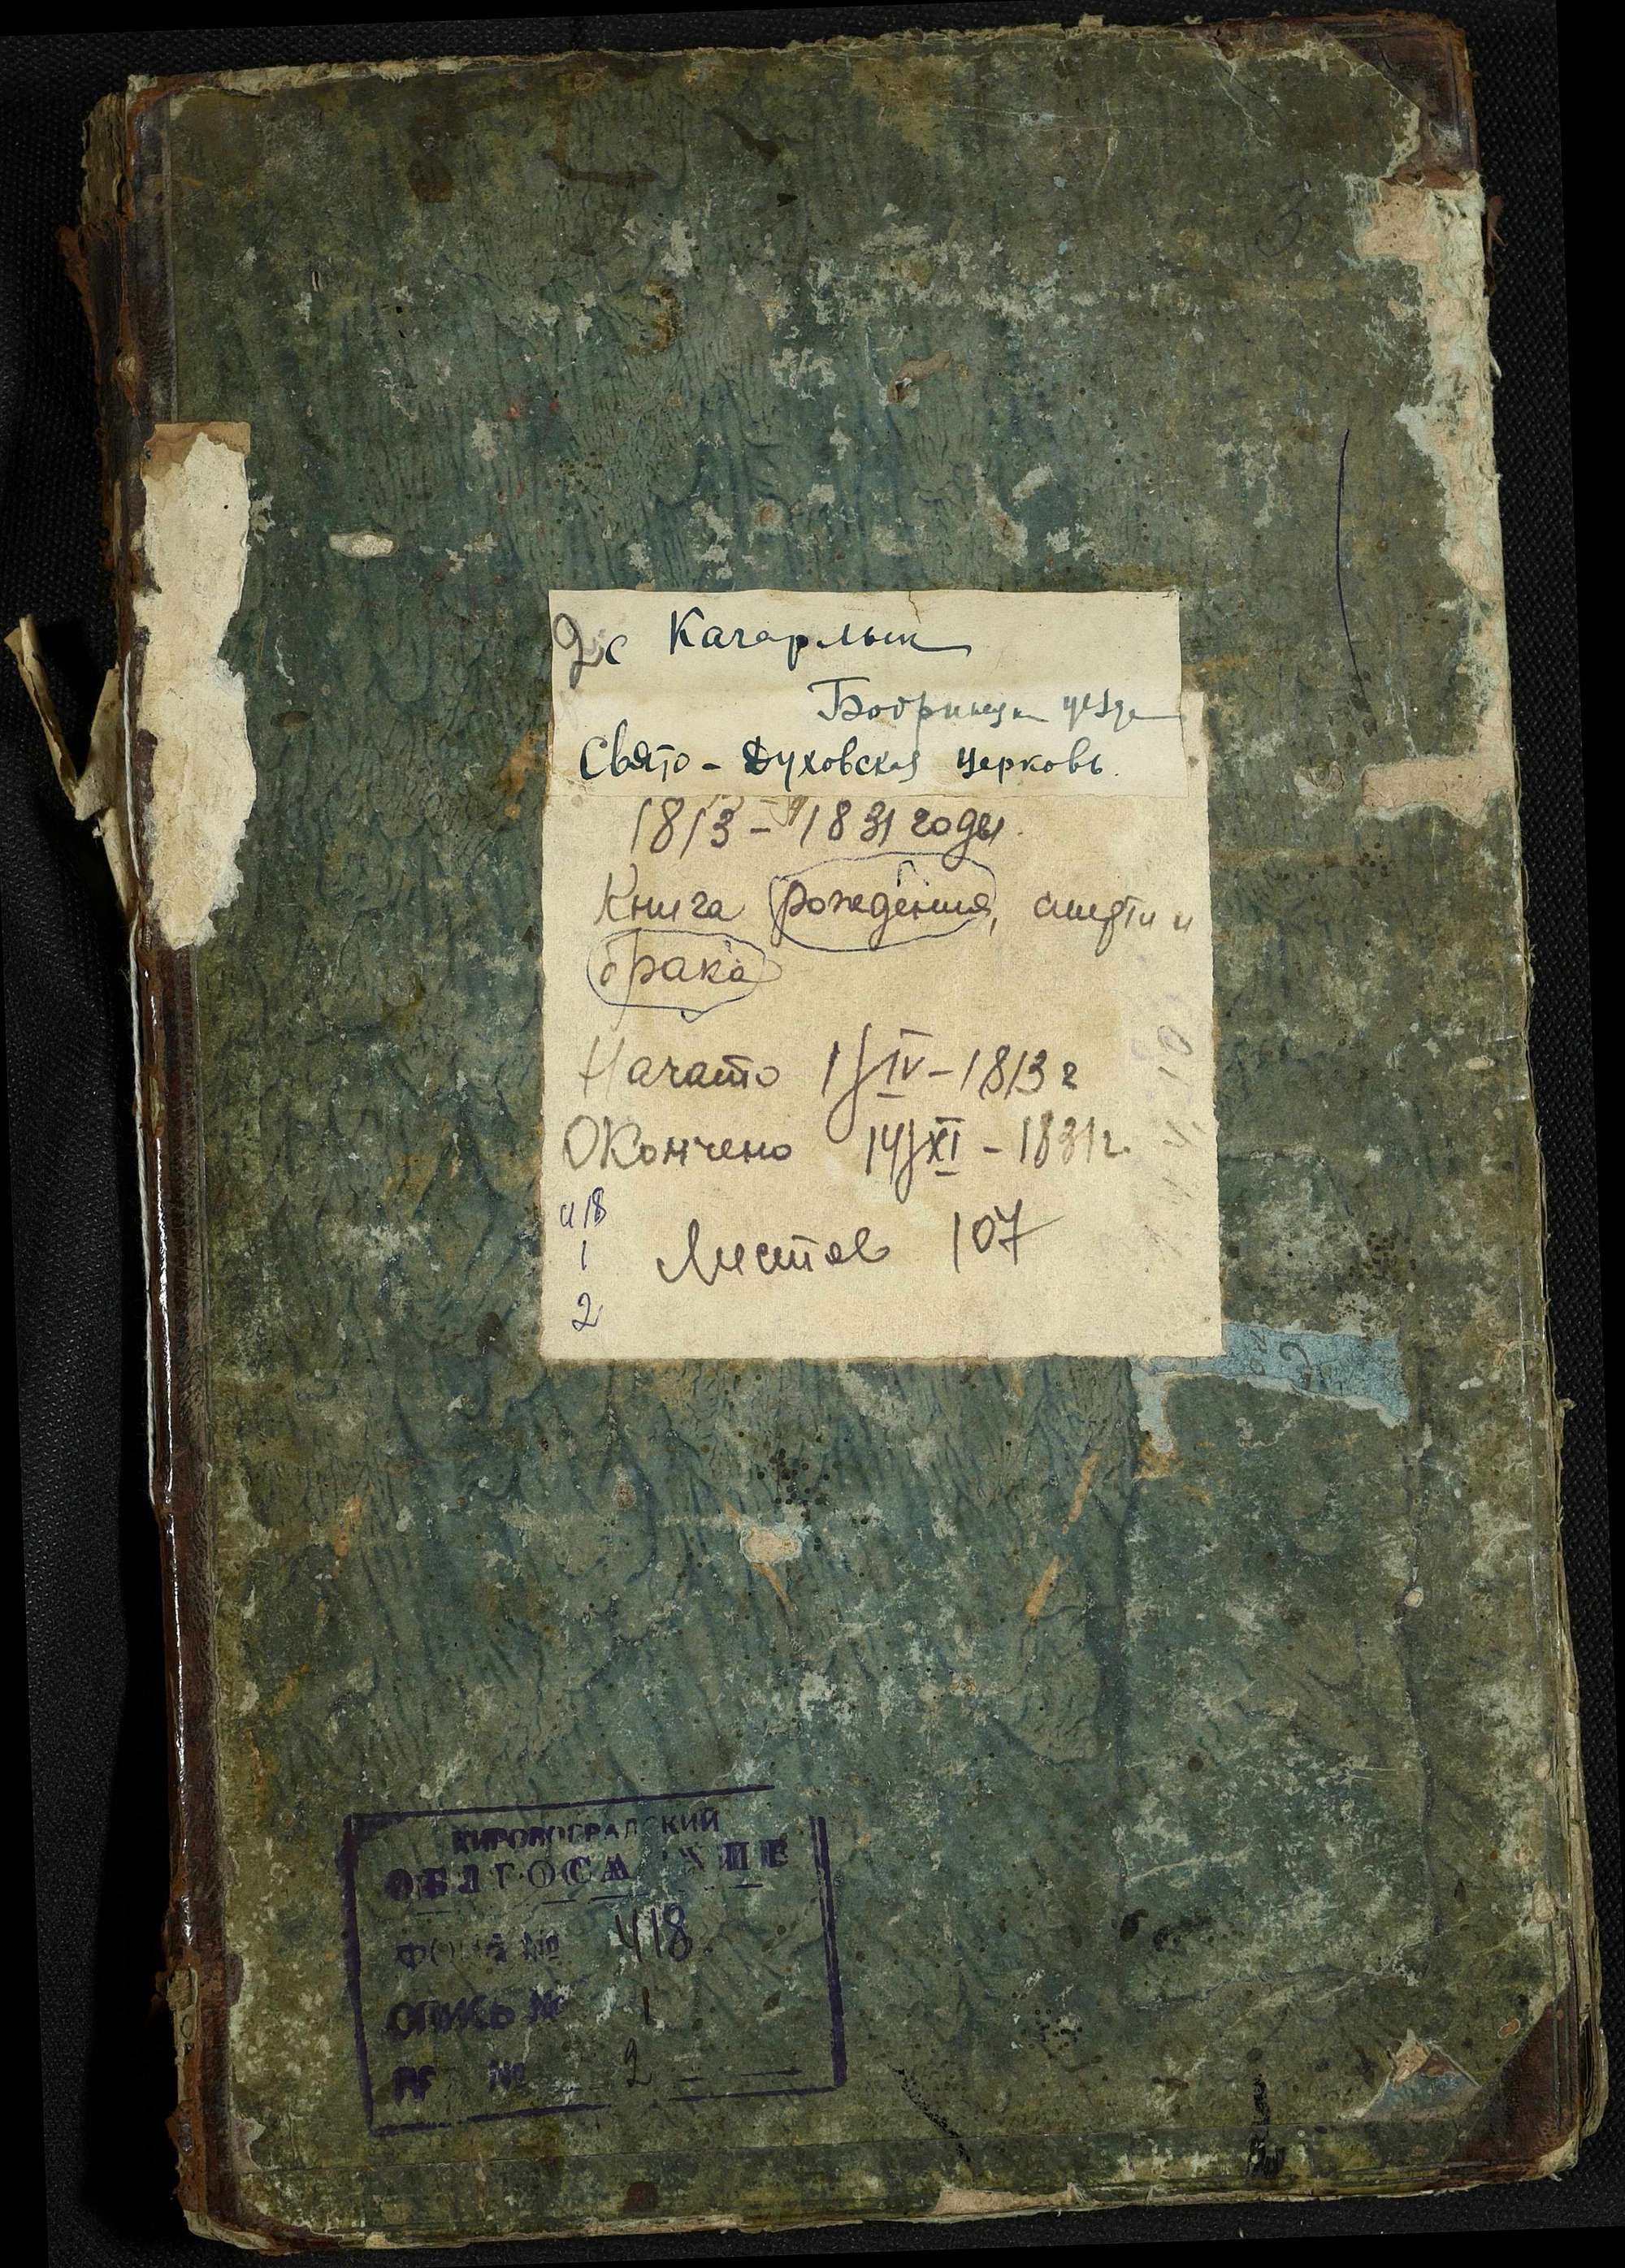 2 с Качарлык
Бобринецк уезда
Свято-Духовская церковь.
1813-1831 годы.
Книга рождения, смерти и
брака
Начато 1/IV-1813 г
Окончено 14/XI-1831 г.
418
1
2
Листов 107
КИРОВОГРАДСКИЙ
ФОНД № 418.
ОПИСЬ № 1
№ 2